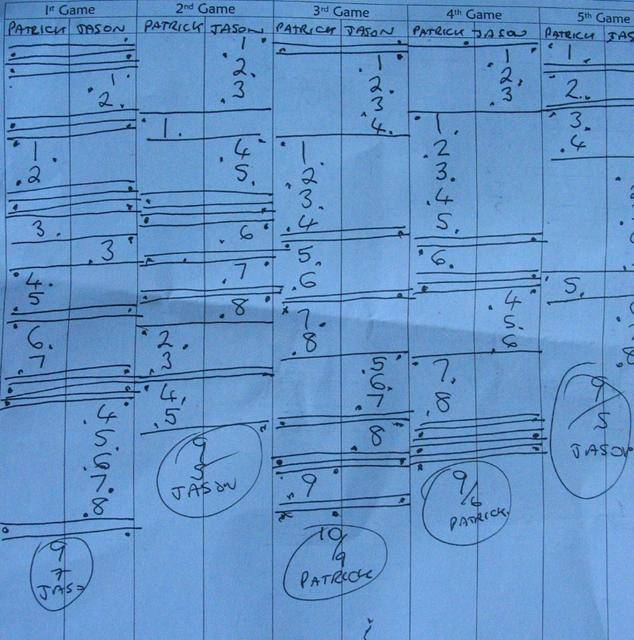 1st Game
PATRICK JASON
1
2.
1
2
3.
3
4
5
6.
7
4
5
6
7
8
9
7
2nd Game
PATRICK JASON
1
2
3
1.
4
5
6
7
8
2
3
4
5
9
5
JASON
3rd Game
PATRICK JASON
1
2
3
4
1
2
3
4
5
6
7
8
5
6
7
8
9
10/9
PATRICK
4th Game
PATRICK JASON
1
2
3
1
2
3
4
5
6
4
5
6
7
8
9/6
PATRICK
5th Game
PATRICK JAS
1
2
3
4
5
9
5
JASON